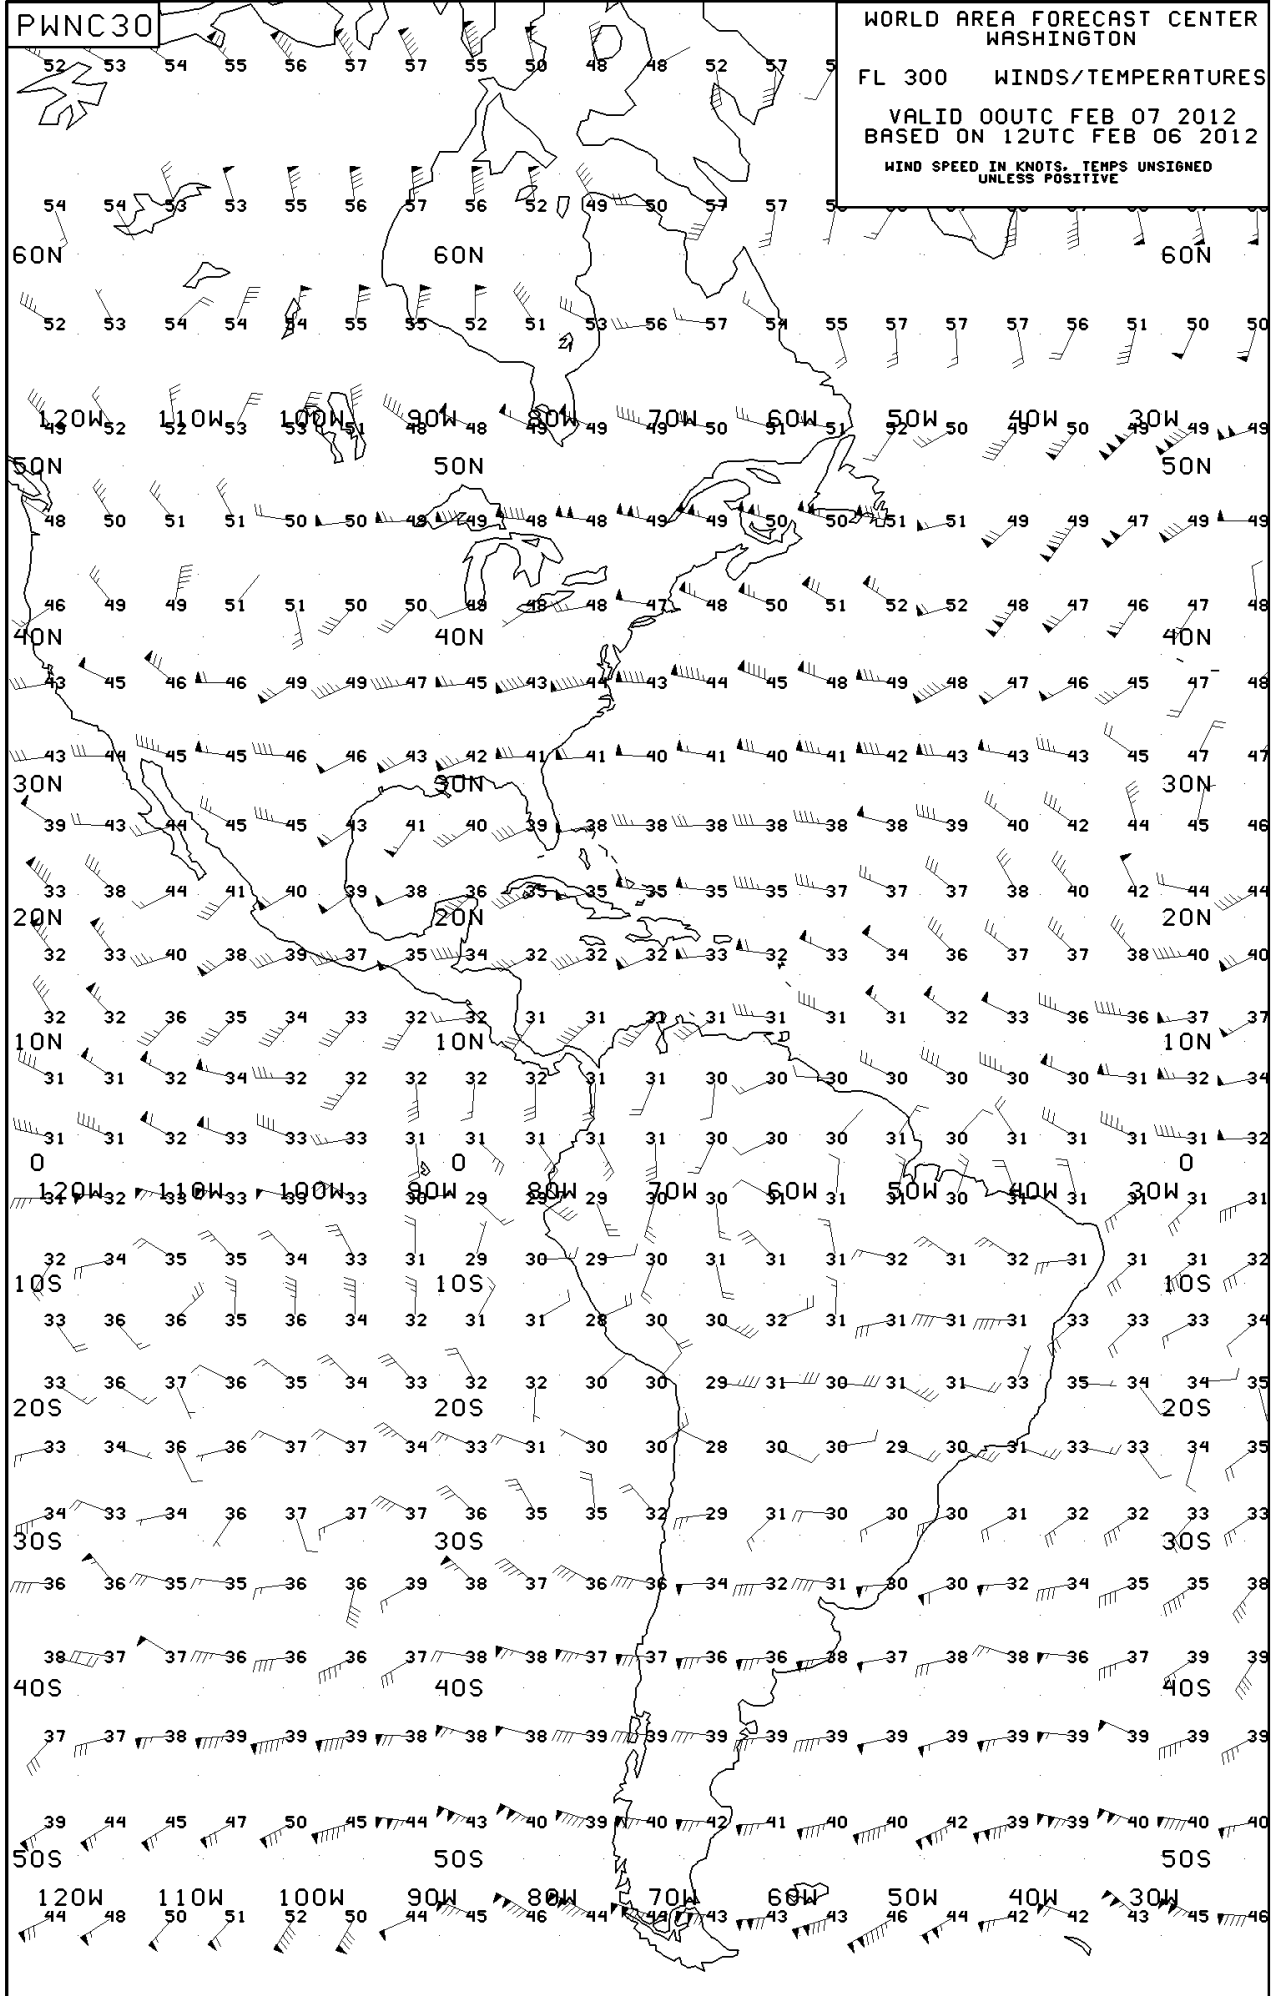 PWNC30
WORLD AREA FORECAST CENTER
WASHINGTON
FL 300 WINDS/TEMPERATURES
VALID 00UTC FEB 07 2012
BASED ON 12UTC FEB 06 2012
WIND SPEED IN KNOTS, TEMPS UNSIGNED
UNLESS POSITIVE
52 53 54 55 56 57 57 55 50 48 48 52 57
54 54 53 53 55 56 57 56 52 49 50 57 57
60N 60N 60N
52 53 54 54 54 55 55 52 51 53 56 57 54 55 57 57 57 56 51 50 50
120W 110W 100W 90W 80W 70W 60W 50W 40W 30W
49 52 52 53 53 51 48 48 49 49 49 50 51 51 52 50 49 50 49 49 49
50N 50N 50N
48 50 51 51 50 50 49 49 48 48 49 49 50 50 51 51 49 49 47 49 49
46 49 49 51 51 50 50 49 48 48 47 48 50 51 52 52 48 47 46 47 48
40N 40N 40N
43 45 46 46 49 49 47 45 43 44 43 44 45 48 49 48 47 46 45 47 48
43 44 45 45 46 46 43 42 41 41 40 41 40 41 42 43 43 43 45 47 47
30N 30N 30N
39 43 44 45 45 43 41 40 39 38 38 38 38 38 38 39 40 42 44 45 46
33 38 44 41 40 39 38 36 35 35 35 35 35 37 37 37 38 40 42 44 44
20N 20N 20N
32 33 40 38 39 37 35 34 32 32 32 33 32 33 34 36 37 37 38 40 40
32 32 36 35 34 33 32 32 31 31 31 31 31 31 31 32 33 36 36 37 37
10N 10N 10N
31 31 32 34 32 32 32 32 32 31 31 30 30 30 30 30 30 30 31 32 34
31 31 32 33 33 33 31 31 31 31 31 30 30 30 31 30 31 31 31 31 32
0 0 0
120W 110W 100W 90W 80W 70W 60W 50W 40W 30W
31 32 33 33 33 33 30 29 29 29 30 30 31 31 31 30 31 31 31 31 31
32 34 35 35 34 33 31 29 30 29 30 31 31 31 32 31 32 31 31 31 32
10S 10S 10S
33 36 36 35 36 34 32 31 31 28 30 30 32 31 31 31 31 33 33 33 34
33 36 37 36 35 34 33 32 32 30 30 29 31 30 31 31 33 35 34 34 35
20S 20S 20S
33 34 36 36 37 37 34 33 31 30 30 28 30 30 29 30 31 33 33 34 35
34 33 34 36 37 37 37 36 35 35 32 29 31 30 30 30 31 32 32 33 33
30S 30S 30S
36 36 35 35 36 36 39 38 37 36 36 34 32 31 30 30 32 34 35 35 38
38 37 37 36 36 36 37 38 38 37 37 36 36 38 37 38 38 36 37 39 39
40S 40S 40S
37 37 38 39 39 39 38 38 38 39 39 39 39 39 39 39 39 39 39 39 39
39 44 45 47 50 45 44 43 40 39 40 42 41 40 40 42 39 39 40 40 40
50S 50S 50S
120W 110W 100W 90W 80W 70W 60W 50W 40W 30W
44 48 50 51 52 50 44 45 46 44 43 43 43 46 44 42 42 43 45 46